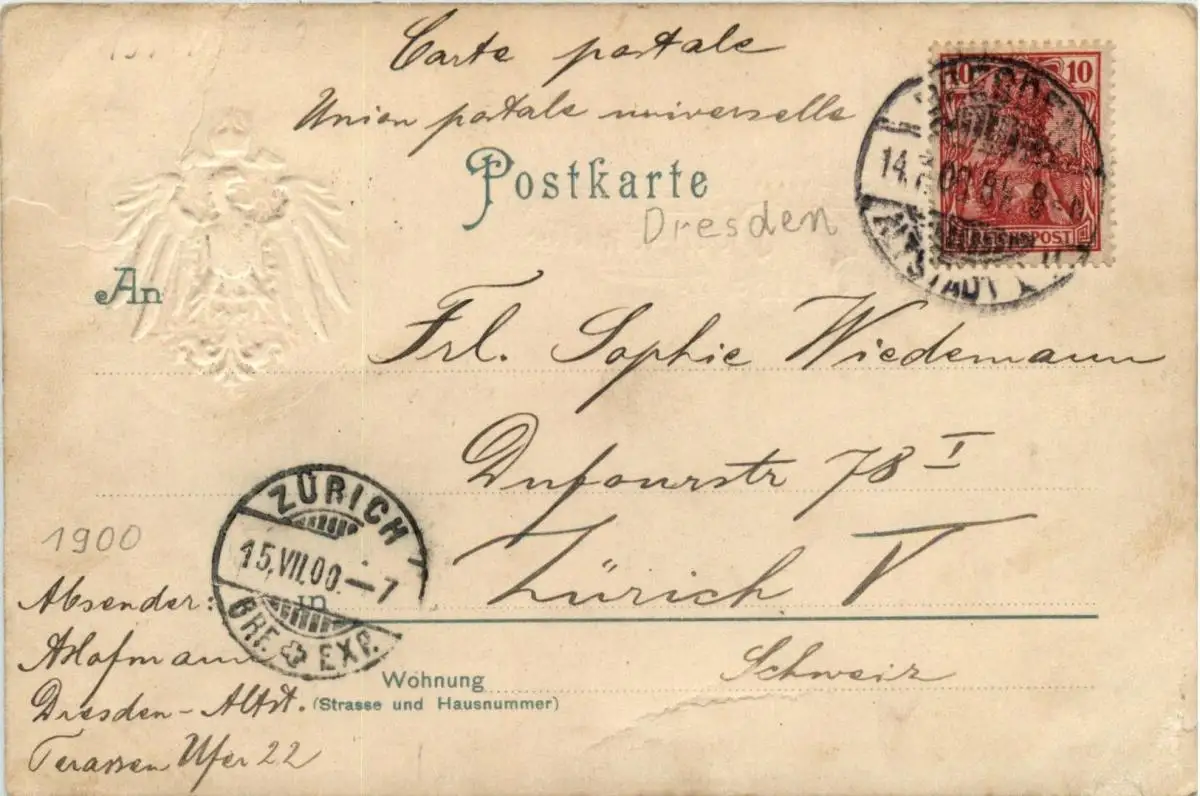 Carte postale
Union postale universelle
Postkarte
Dresden
10 10
REICHSPOST
DRESDEN
14.7.00 8-9
ALTSTADT
An
Frl. Sophie Wiedemann
Dufourstr 78 I
Zürich V
Schweiz
ZÜRICH
15.VII.00.-7
BRF. EXP.
in
Wohnung
(Strasse und Hausnummer)
1900
Absender:
A Hofmann
Dresden-Altst.
Terassen Ufer 22